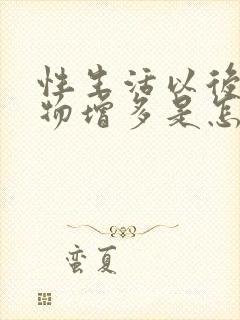 性生活以後
物增多是怎
蛮夏